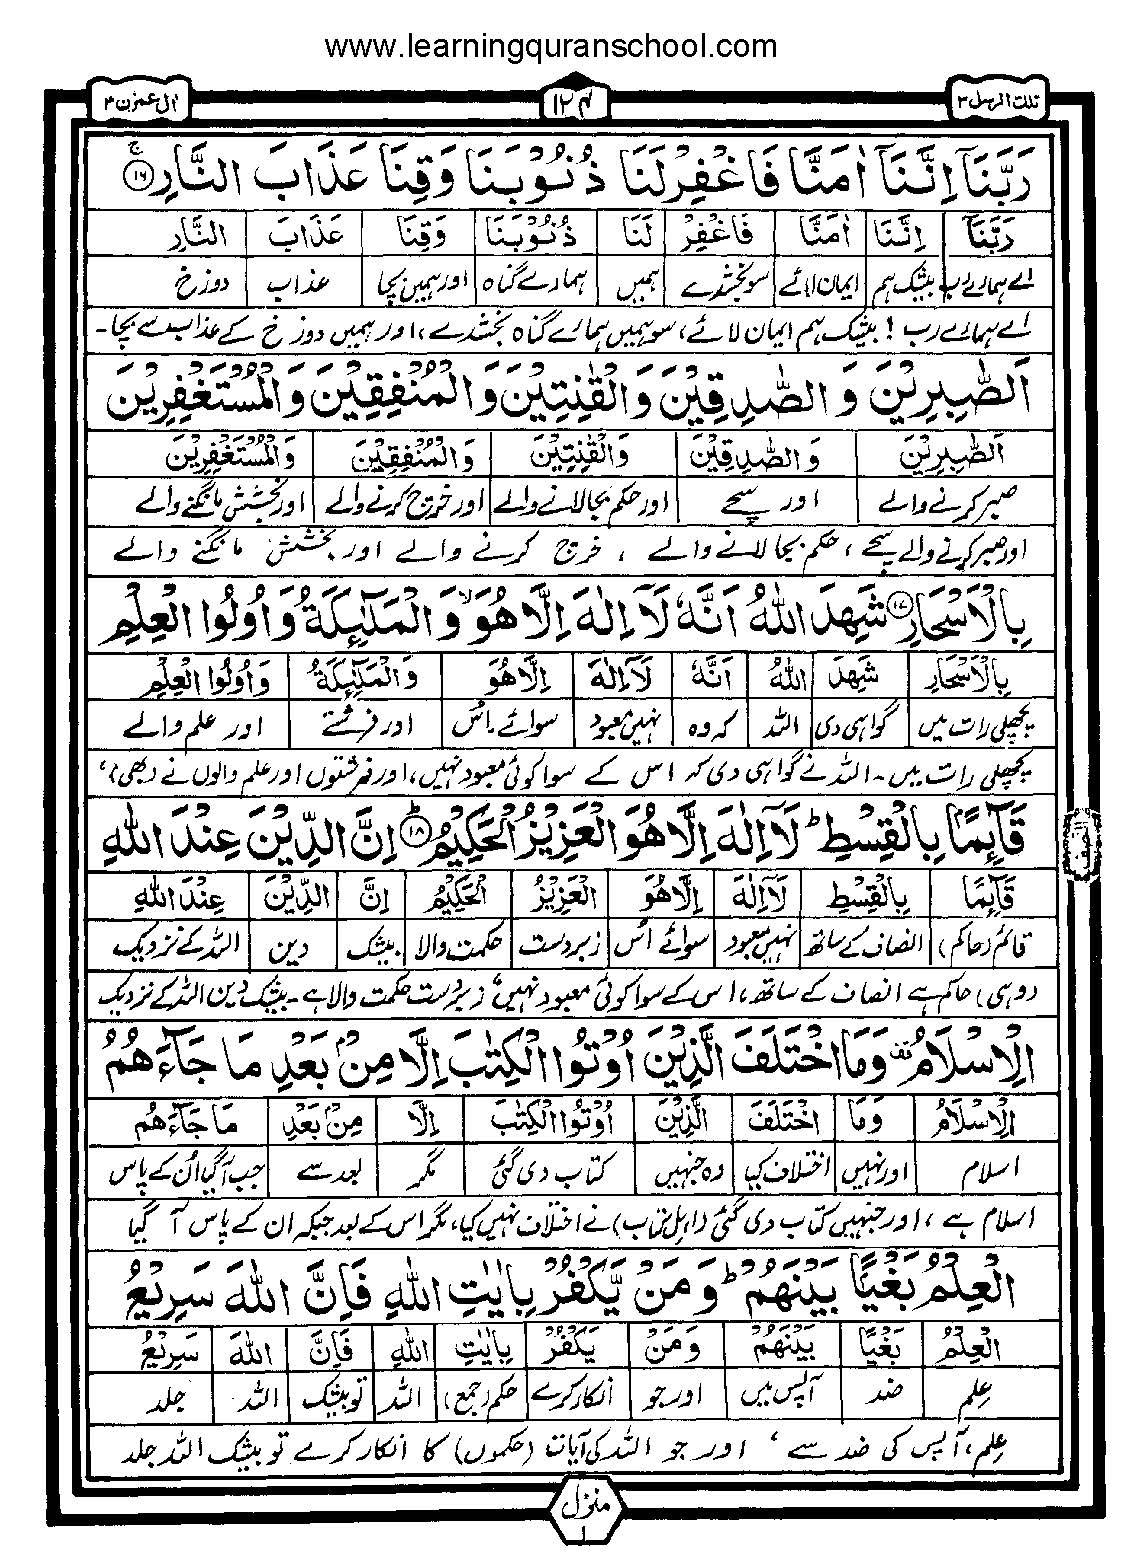 www.learningquranschool.com
تلك الرسل ٣
١٢٤
اٰل عمرٰن ٣
رَبَّنَآ اِنَّنَآ اٰمَنَّا فَاغْفِرْ لَنَا ذُنُوْبَنَا وَقِنَا عَذَابَ النَّارِ ١٦ ج
رَبَّنَآ اِنَّنَا اٰمَنَّا فَاغْفِرْ لَنَا ذُنُوْبَنَا وَقِنَا عَذَابَ النَّارِ
اے ہمارے رب بیشک ہم ایمان لائے سو بخشدے ہمیں ہمارے گناہ اور ہمیں بچا عذاب دوزخ
اے ہمارے رب ! بیشک ہم ایمان لائے، سو ہمیں ہمارے گناہ بخشدے، اور ہمیں دوزخ کے عذاب سے بچا۔
اَلصّٰبِرِيْنَ وَ الصّٰدِقِيْنَ وَالْقٰنِتِيْنَ وَ الْمُنْفِقِيْنَ وَالْمُسْتَغْفِرِيْنَ
اَلصّٰبِرِيْنَ وَ الصّٰدِقِيْنَ وَ الْقٰنِتِيْنَ وَ الْمُنْفِقِيْنَ وَالْمُسْتَغْفِرِيْنَ
صبر کرنے والے اور سچے اور حکم بجا لانے والے اور خرچ کرنے والے اور بخشش مانگنے والے
اور صبر کرنے والے سچے، حکم بجا لانے والے ، خرچ کرنے والے اور بخشش مانگنے والے
بِالْاَسْحَارِ ١٧ شَهِدَ اللّٰهُ اَنَّهٗ لَآ اِلٰهَ اِلَّا هُوَ ۙ وَ الْمَلٰٓئِكَةُ وَ اُولُوا الْعِلْمِ
بِالْاَسْحَارِ شَهِدَ اللّٰهُ اَنَّهٗ لَآ اِلٰهَ اِلَّا هُوَ وَ الْمَلٰٓئِكَةُ وَ اُولُوا الْعِلْمِ
پچھلی رات میں گواہی دی اللہ کہ وہ نہیں معبود سوائے اُس اور فرشتے اور علم والے
پچھلی رات میں۔ اللہ نے گواہی دی کہ اس کے سوا کوئی معبود نہیں، اور فرشتوں اور علم والوں نے (بھی)،
قَآئِمًاۢ بِالْقِسْطِ ؕ لَآ اِلٰهَ اِلَّا هُوَ الْعَزِيْزُ الْحَكِيْمُ ؕ ١٨ اِنَّ الدِّيْنَ عِنْدَ اللّٰهِ
قَآئِمًا بِالْقِسْطِ لَآ اِلٰهَ اِلَّا هُوَ الْعَزِيْزُ الْحَكِيْمُ اِنَّ الدِّيْنَ عِنْدَ اللّٰهِ
قائم (حاکم) انصاف کے ساتھ نہیں معبود سوائے اُس زبردست حکمت والا بیشک دین اللہ کے نزدیک
(وہی) حاکم ہے انصاف کے ساتھ، اس کے سوا کوئی معبود نہیں، زبردست حکمت والا ہے۔ بیشک دین اللہ کے نزدیک
الْاِسْلَامُ وَمَا اخْتَلَفَ الَّذِيْنَ اُوْتُوا الْكِتٰبَ اِلَّا مِنْۢ بَعْدِ مَا جَآءَهُمُ
الْاِسْلَامُ وَمَا اخْتَلَفَ الَّذِيْنَ اُوْتُوا الْكِتٰبَ اِلَّا مِنْۢ بَعْدِ مَا جَآءَهُمُ
اسلام اور نہیں اختلاف کیا وہ جنہیں کتاب دی گئی مگر بعد سے جب آگیا اُن کے پاس
اسلام ہے ، اور جنہیں کتاب دی گئی (اہل کتاب) نے اختلاف نہیں کیا، مگر اس کے بعد جبکہ ان کے پاس آ گیا
الْعِلْمُ بَغْيًۢا بَيْنَهُمْ ؕ وَ مَنْ يَّكْفُرْ بِاٰيٰتِ اللّٰهِ فَاِنَّ اللّٰهَ سَرِيْعُ
الْعِلْمُ بَغْيًۢا بَيْنَهُمْ وَ مَنْ يَّكْفُرْ بِاٰيٰتِ اللّٰهِ فَاِنَّ اللّٰهَ سَرِيْعُ
علم ضد آپس میں اور جو انکار کرے حکم (جمع) اللہ تو بیشک اللہ جلد
علم، آپس کی ضد سے ، اور جو اللہ کی آیات (حکموں) کا انکار کرے تو بیشک اللہ جلد
منزل
١